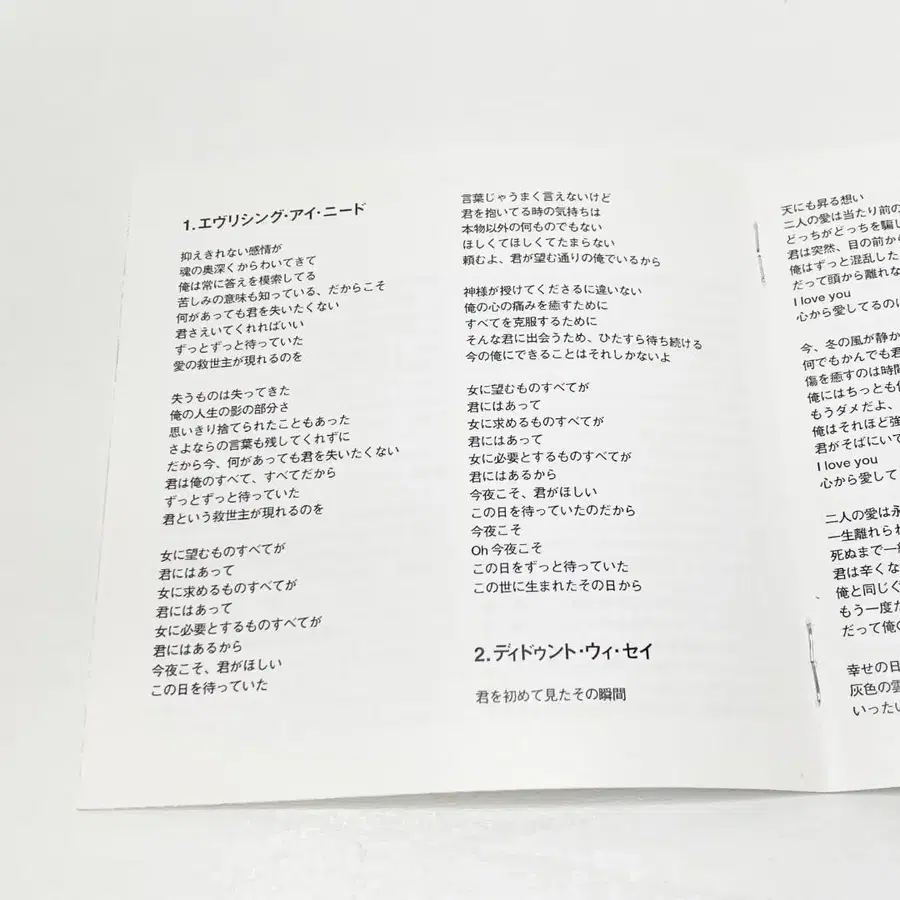 1.エヴリシング・アイ・ニード
抑えきれない感情が
魂の奥深くからわいてきて
俺は常に答えを模索してる
苦しみの意味も知っている、だからこそ
何があっても君を失いたくない
君さえいてくれればいい
ずっとずっと待っていた
愛の救世主が現れるのを
失うものは失ってきた
俺の人生の影の部分さ
思いきり捨てられたこともあった
さよならの言葉も残してくれずに
だから今、何があっても君を失いたくない
君は俺のすべて、すべてだから
ずっとずっと待っていた
君という救世主が現れるのを
女に望むものすべてが
君にはあって
女に求めるものすべてが
君にはあって
女に必要とするものすべてが
君にはあるから
今夜こそ、君がほしい
この日を待っていた
言葉じゃうまく言えないけど
君を抱いてる時の気持ちは
本物以外の何ものでもない
ほしくてほしくてたまらない
頼むよ、君が望む通りの俺でいるから
神様が授けてくださるに違いない
俺の心の痛みを癒すために
すべてを克服するために
そんな君に出会うため、ひたすら待ち続ける
今の俺にできることはそれしかないよ
女に望むものすべてが
君にはあって
女に求めるものすべてが
君にはあって
女に必要とするものすべてが
君にはあるから
今夜こそ、君がほしい
この日を待っていたのだから
今夜こそ
Oh 今夜こそ
この日をずっと待っていた
この世に生まれたその日から
2.ディドゥント・ウィ・セイ
君を初めて見たその瞬間
天にも昇る想い
二人の愛は当たり前の
どっちがどっちを騙し
君は突然、目の前から
俺はずっと混乱した
だって頭から離れな
I love you
心から愛してるのに
今、冬の風が静か
何でもかんでも君
傷を癒すのは時間
俺にはちっとも
もうダメだよ、
俺はそれほど強
君がそばにいて
I love you
心から愛して
二人の愛は永
一生離れられ
死ぬまで一緒
君は辛くな
俺と同じぐ
もう一度
だって俺の
幸せの日
灰色の雲
いったい